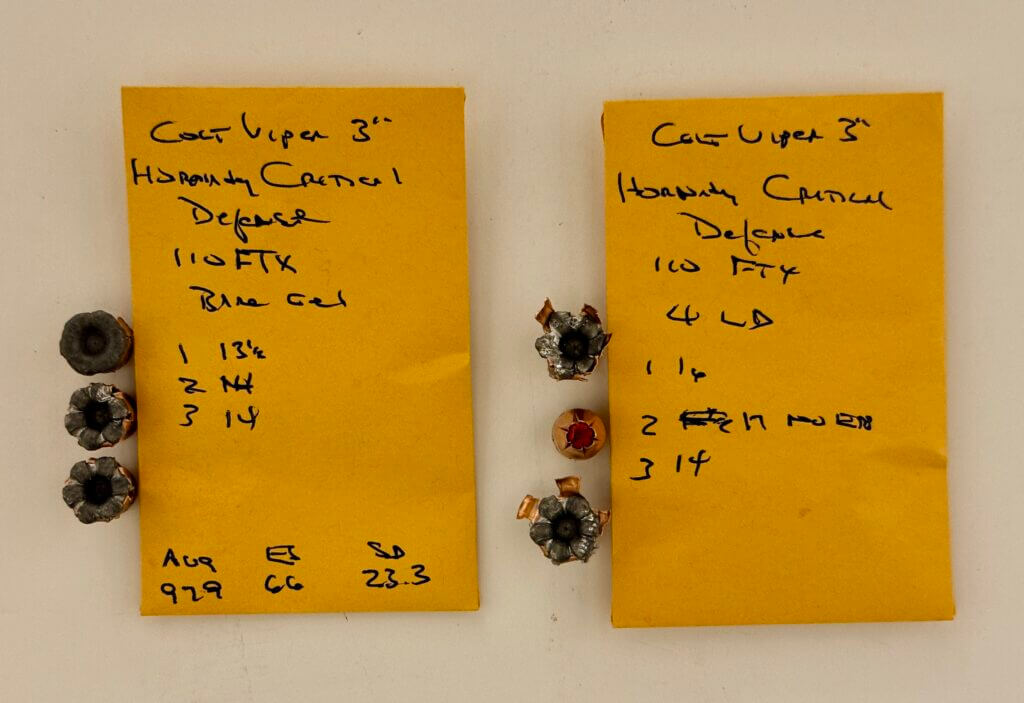 Colt Viper 3"
Hornady Critical
Defense
110 FTX
Bare Gel
1 13½
2
3 14
Avg ES SD
929 66 23.3
Colt Viper 3"
Hornady Critical
Defense
110 FTX
4 LD
1
2 17 No EXP
3 14